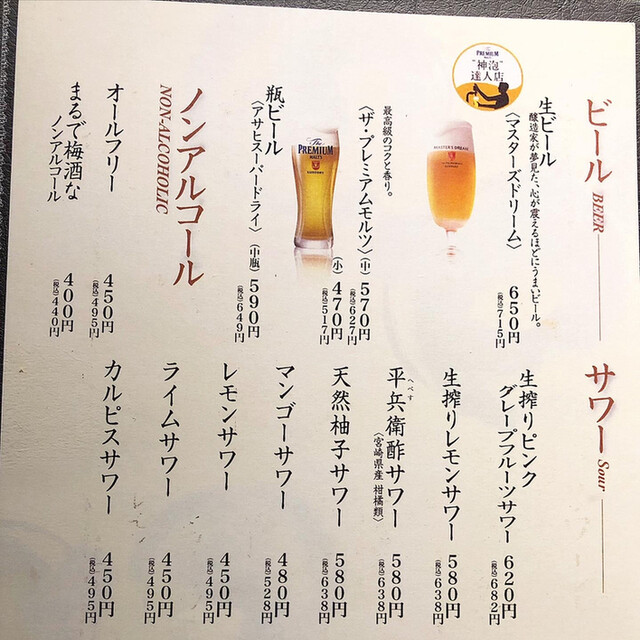 ビール BEER
PREMIUM
"神泡"
達人店
生ビール
醸造家が夢見た、心が震えるほどにうまいビール。
〈マスターズドリーム〉 650円
(税込)715円
MASTER'S DREAM
最高級のコクと香り。
〈ザ・プレミアムモルツ〉(中) 570円
(税込)627円
(小) 470円
(税込)517円
The
PREMIUM
MALT'S
SUNTORY
瓶ビール
〈アサヒスーパードライ〉(中瓶) 590円
(税込)649円
ノンアルコール
NON-ALCOHOLIC
オールフリー 450円
(税込)495円
まるで梅酒な
ノンアルコール 400円
(税込)440円
サワー Sour
生搾りピンク
グレープフルーツサワー 620円
(税込)682円
生搾りレモンサワー 580円
(税込)638円
へべす
平兵衛酢サワー 580円
〈宮崎県産 柑橘類〉 (税込)638円
天然柚子サワー 580円
(税込)638円
マンゴーサワー 480円
(税込)528円
レモンサワー 450円
(税込)495円
ライムサワー 450円
(税込)495円
カルピスサワー 450円
(税込)495円